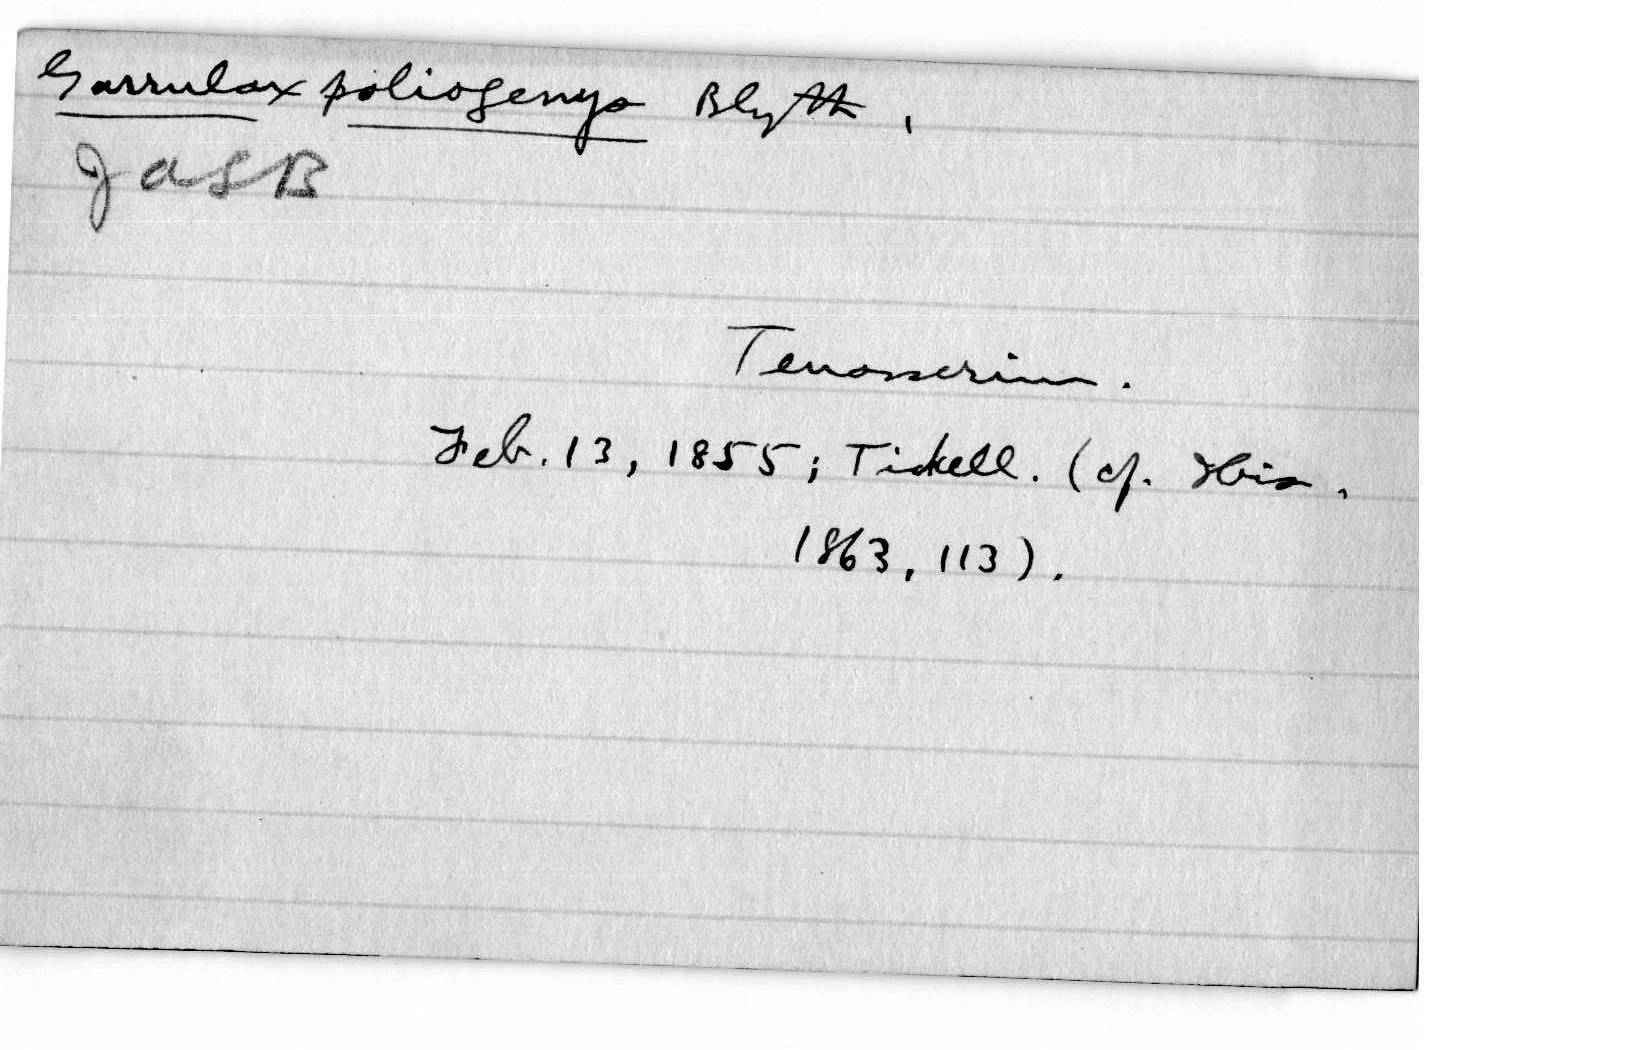 Garrulax poliogenys Blyth,
JASB
Tenasserim.
Feb. 13, 1855; Tickell. (cf. Ibis,
1863, 113).